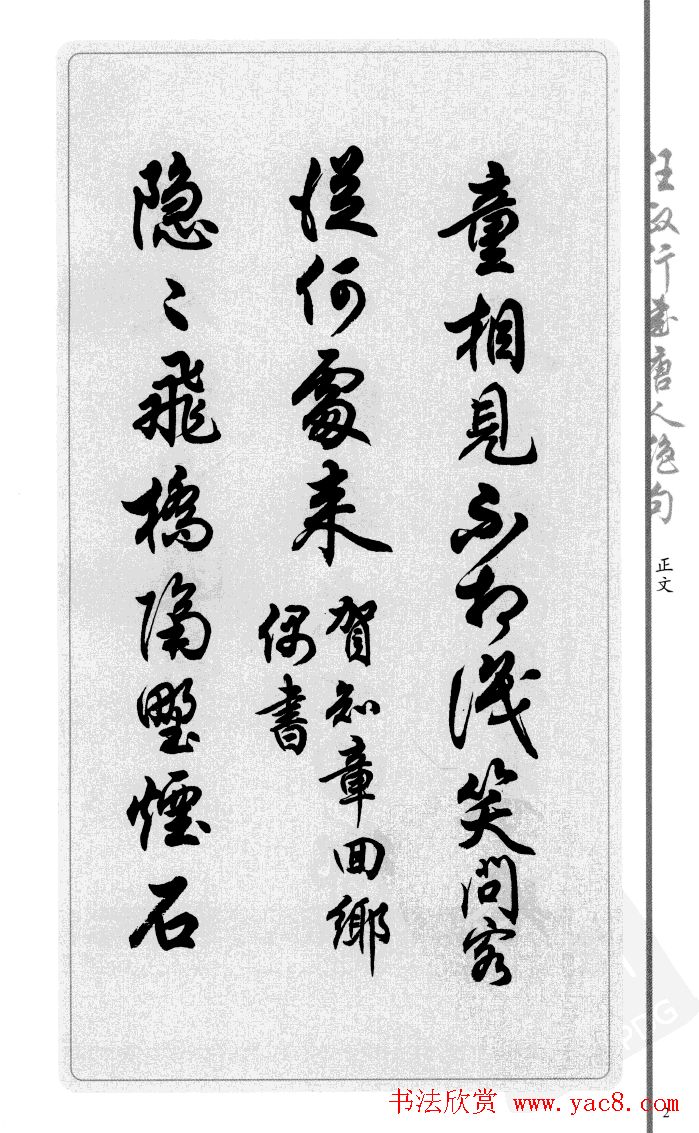 童相見不相識笑問客
從何處來
賀知章回鄉
偶書
隐〻飛橋隔野煙石
任政行書唐人绝句
正文
书法欣赏 www.yac8.com
2